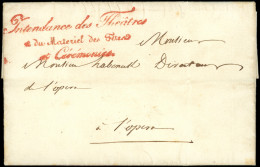 Intendance des Théâtres
et du Materiel des Fêtes
et Cérémonies.
Monsieur
Monsieur habeneck Directeur
de l'opera
à l'opera